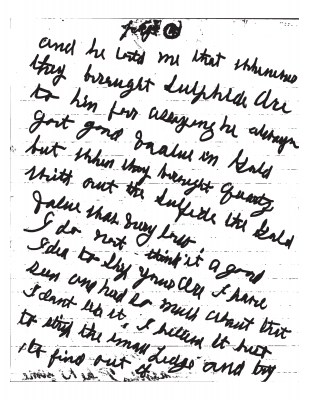 page 6
and he told me that whenever
they brought Sulphide Ore
to him for assaying he always
got good Value in Gold
but when they brought Quartz
with out the Sulfide the Gold
Value was very low
I do not think it a good
Idea to Ship your Ore I have
seen and had so much about that
I dont like it I believe it best
to the small Ledge and try
to find out if